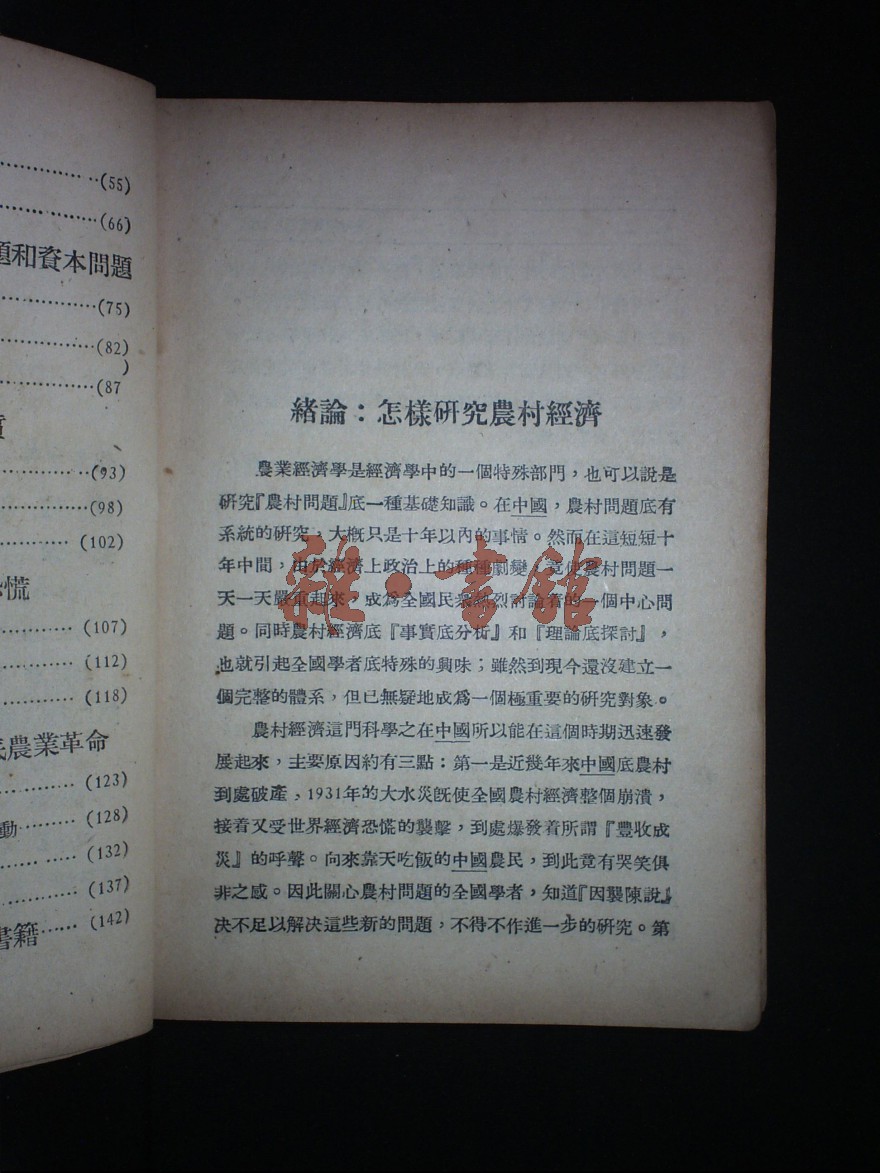 (55)
(66)
題和資本問題
(75)
(82)
)
(87
(93)
(98)
(102)
慌
(107)
(112)
(118)
底農業革命
(123)
動 (128)
(132)
(137)
書籍 (142)
緒論：怎樣研究農村經濟
農業經濟學是經濟學中的一個特殊部門，也可以說是
研究『農村問題』底一種基礎知識。在中國，農村問題底有
系統的研究，大概只是十年以內的事情。然而在這短短十
年中間，由於經濟上政治上的種種劇變，竟使農村問題一
天一天嚴重起來，成為全國民衆熱烈討論着的一個中心問
題。同時農村經濟底『事實底分析』和『理論底探討』，
也就引起全國學者底特殊的興味；雖然到現今還沒建立一
個完整的體系，但已無疑地成為一個極重要的研究對象。
農村經濟這門科學之在中國所以能在這個時期迅速發
展起來，主要原因約有三點：第一是近幾年來中國底農村
到處破產，1931年的大水災旣使全國農村經濟整個崩潰，
接着又受世界經濟恐慌的襲擊，到處爆發着所謂『豐收成
災』的呼聲。向來靠天吃飯的中國農民，到此竟有哭笑俱
非之感。因此關心農村問題的全國學者，知道『因襲陳說』
決不足以解決這些新的問題，不得不作進一步的研究。第
雜·書館